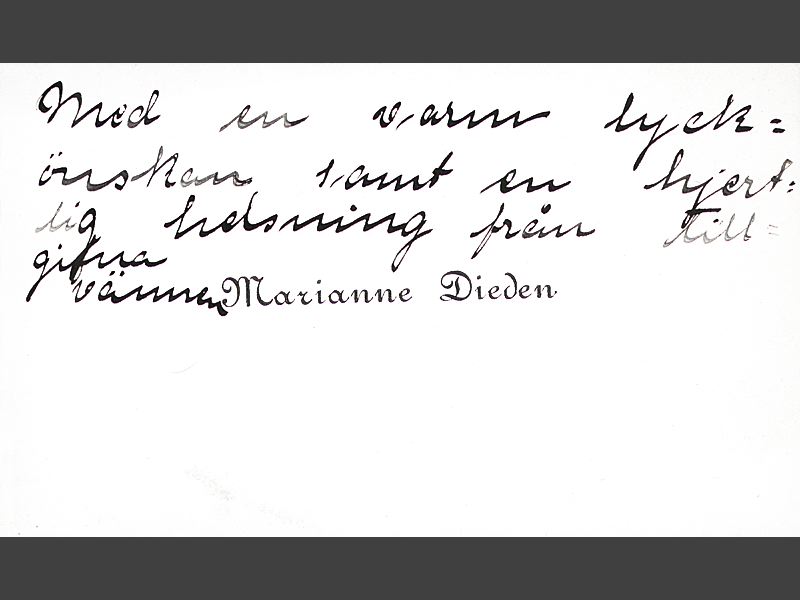 Med en varm lyck=
önskan samt en hjert=
lig helsning från till=
gifna
vännen Marianne Dieden